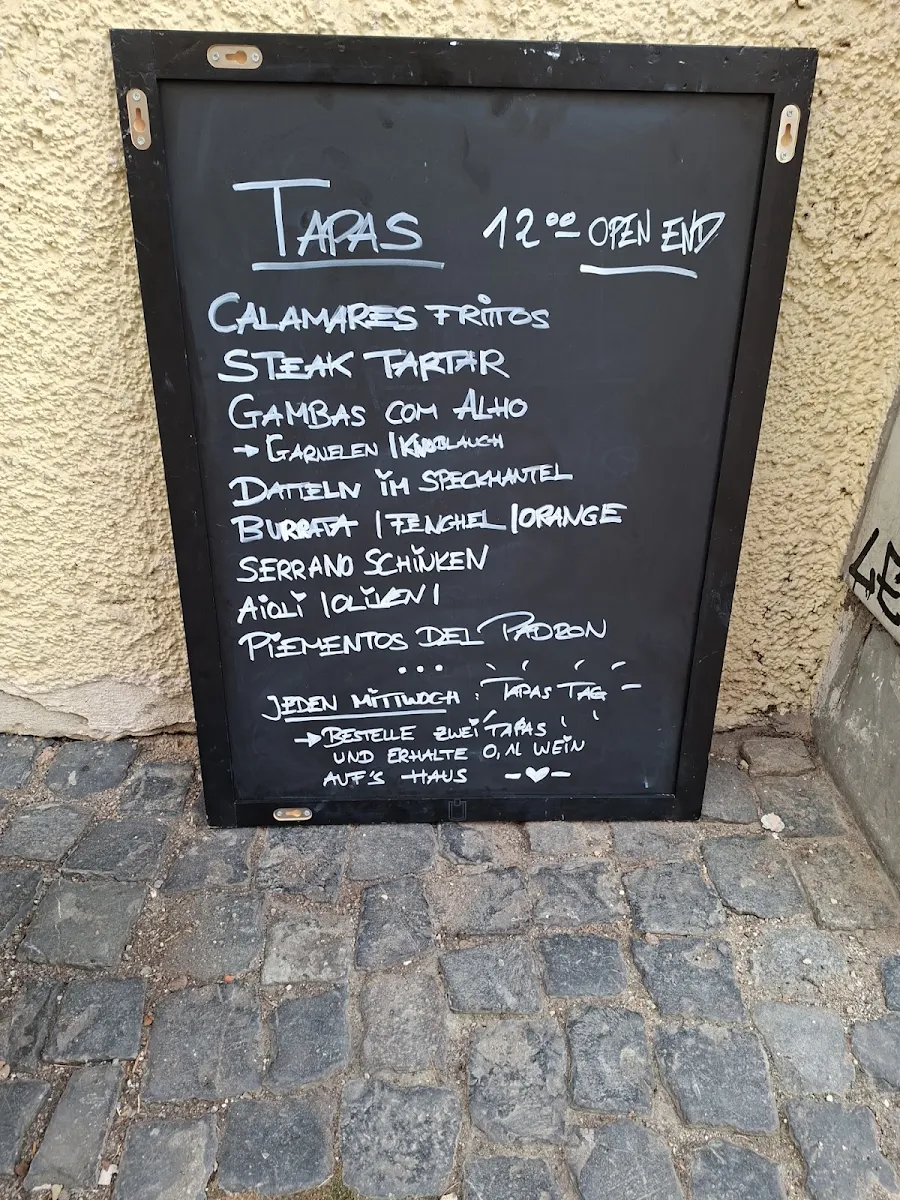 TAPAS 12⁰⁰ OPEN END
CALAMARES FRITTOS
STEAK TARTAR
GAMBAS COM ALHO
→ GARNELEN | KNOBLAUCH
DATTELN IM SPECKMANTEL
BURRATA | FENCHEL | ORANGE
SERRANO SCHINKEN
AIOLI | OLIVEN |
PIEMENTOS DEL PADRON
...
JEDEN MITTWOCH : TAPAS TAG
→ BESTELLE ZWEI TAPAS
UND ERHALTE 0,1L WEIN
AUF'S HAUS -♥-